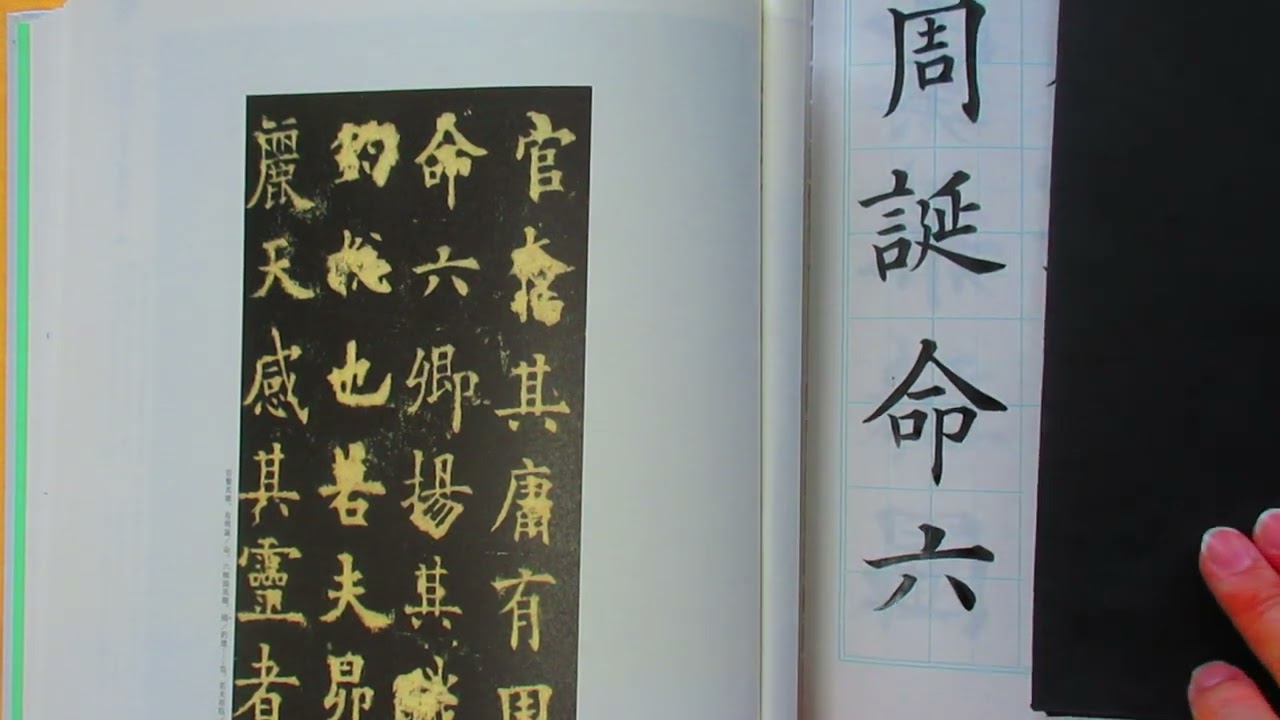 周誕命六
官其庸有周
命六卿揚其職
鈞也若夫昴
麗天感其靈者